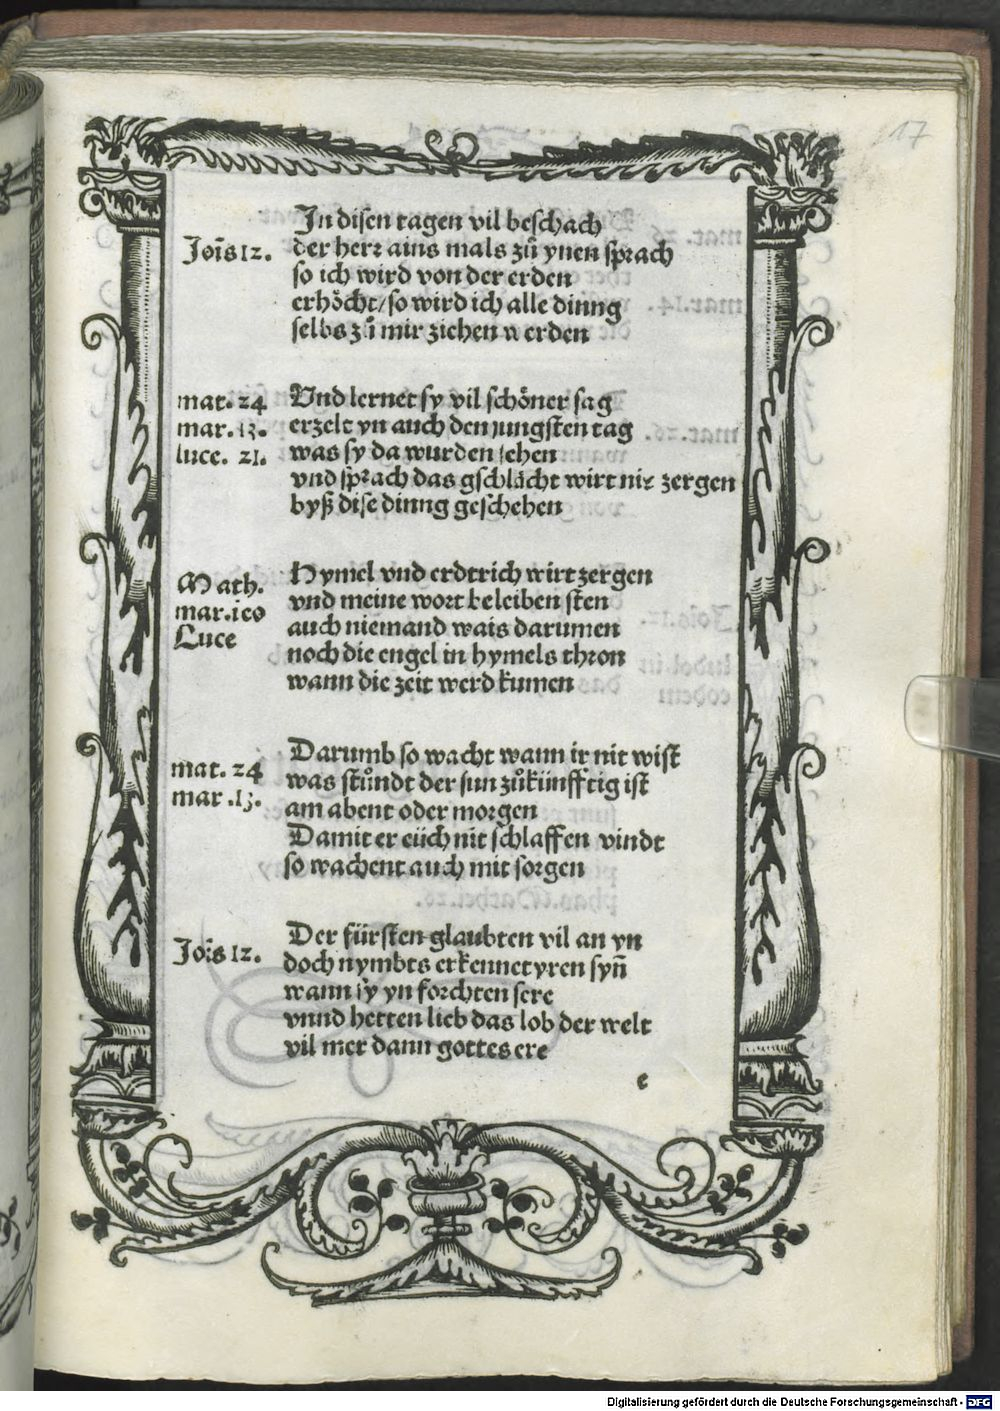 17
In disen tagen vil beschach
Joīs 12. der herr ains mals zů ynen sprach
so ich wird von der erden
erhöcht / so wird ich alle dinng
selbs zů mir ziehen werden
mat. 24 Vnd lernet sy vil schöner sag
mar. 13. erzelt yn auch den jungsten tag
luce. 21. was sy da wurden sehen
vnd sprach das gschlächt wirt nit zergen
byß dise dinng geschehen
Math. Hymel vnd erdtrich wirt zergen
mar. ico vnd meine wort beleiben sten
Luce auch niemand wais darumen
noch die engel in hymels thron
wann die zeit werd kumen
Darumb so wacht wann ir nit wist
mat. 24 was stůndt der sun zůkünfftig ist
mar. 13. am abent oder morgen
Damit er eüch nit schlaffen vindt
so wachent auch mit sorgen
Der fürsten glaubten vil an yn
Joīs 12. doch nymbts erkennet yren syn̄
wann sy yn forchten sere
vnnd hetten lieb das lob der welt
vil mer dann gottes ere
e
Digitalisierung gefördert durch die Deutsche Forschungsgemeinschaft - DFG